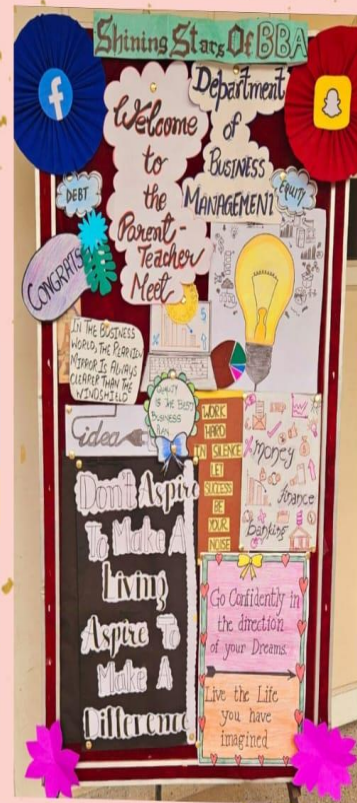 Shining Stars Of BBA
Welcome
to
the
Parent-
Teacher
Meet
Department
of
BUSINESS
MANAGEMENT
DEBT
EQUITY
CONGRATS
IN THE BUSINESS
WORLD, THE REARVIEW
MIRROR IS ALWAYS
CLEARER THAN THE
WINDSHIELD
idea
IS THE BEST
BUSINESS
PLAN
WORK
HARD
IN SILENCE
LET
SUCCESS
BE
YOUR
NOISE
money
finance
banking
Don't Aspire
To Make A
Living
Aspire To
Make A
Difference
Go Confidently in
the direction
of your Dreams
Live the Life
you have
imagined